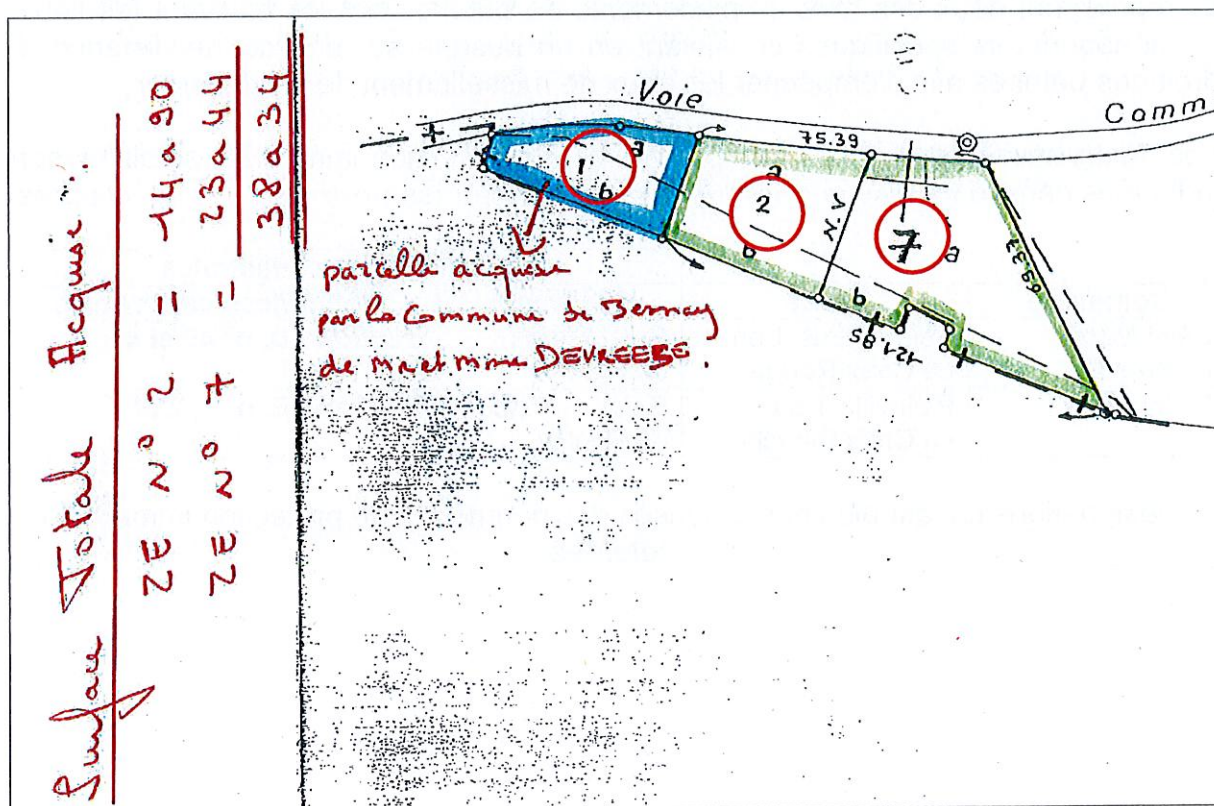 Surface Totale Acquise :
ZE N° 2 = 14 a 90
ZE N° 7 = 23 a 44
38 a 34
Voie Comm
75.39
1
a
b
2
a
b
V.N
7
a
b
69.37
121.85
parcelle acquise
par la Commune de Bernay
de mr et mme DEVLEESE.